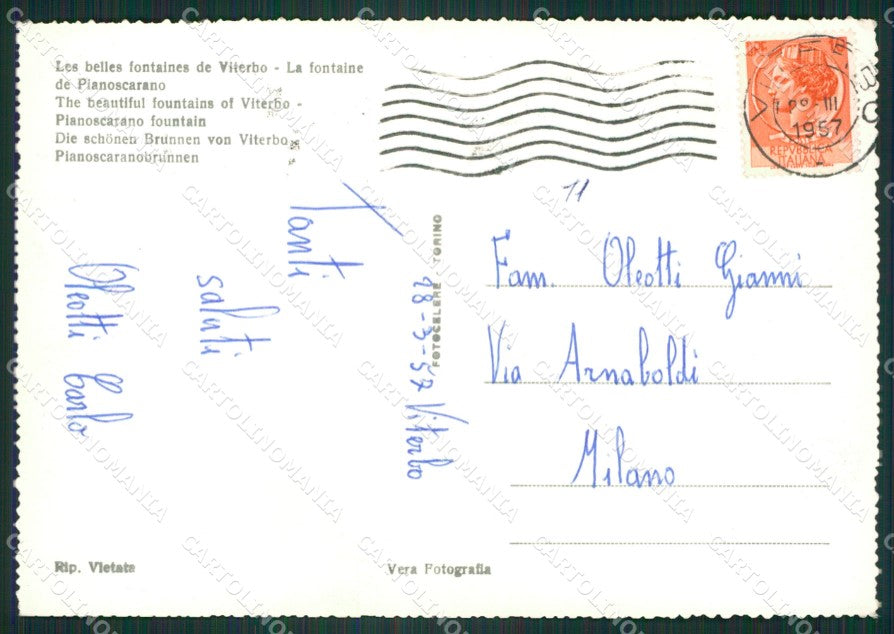 Les belles fontaines de Viterbo - La fontaine
de Pianoscarano
The beautiful fountains of Viterbo -
Pianoscarano fountain
Die schönen Brunnen von Viterbo -
Pianoscaranobrunnen
VITERBO
III
1957
REPVBBLICA
ITALIANA
11
Tanti
saluti
Oleotti Carlo
18-3-57 Viterbo
FOTOCELERE TORINO
Fam. Oleotti Gianni
Via Arnaboldi
Milano
Rip. Vietata
Vera Fotografia
CARTOLINOMANIA